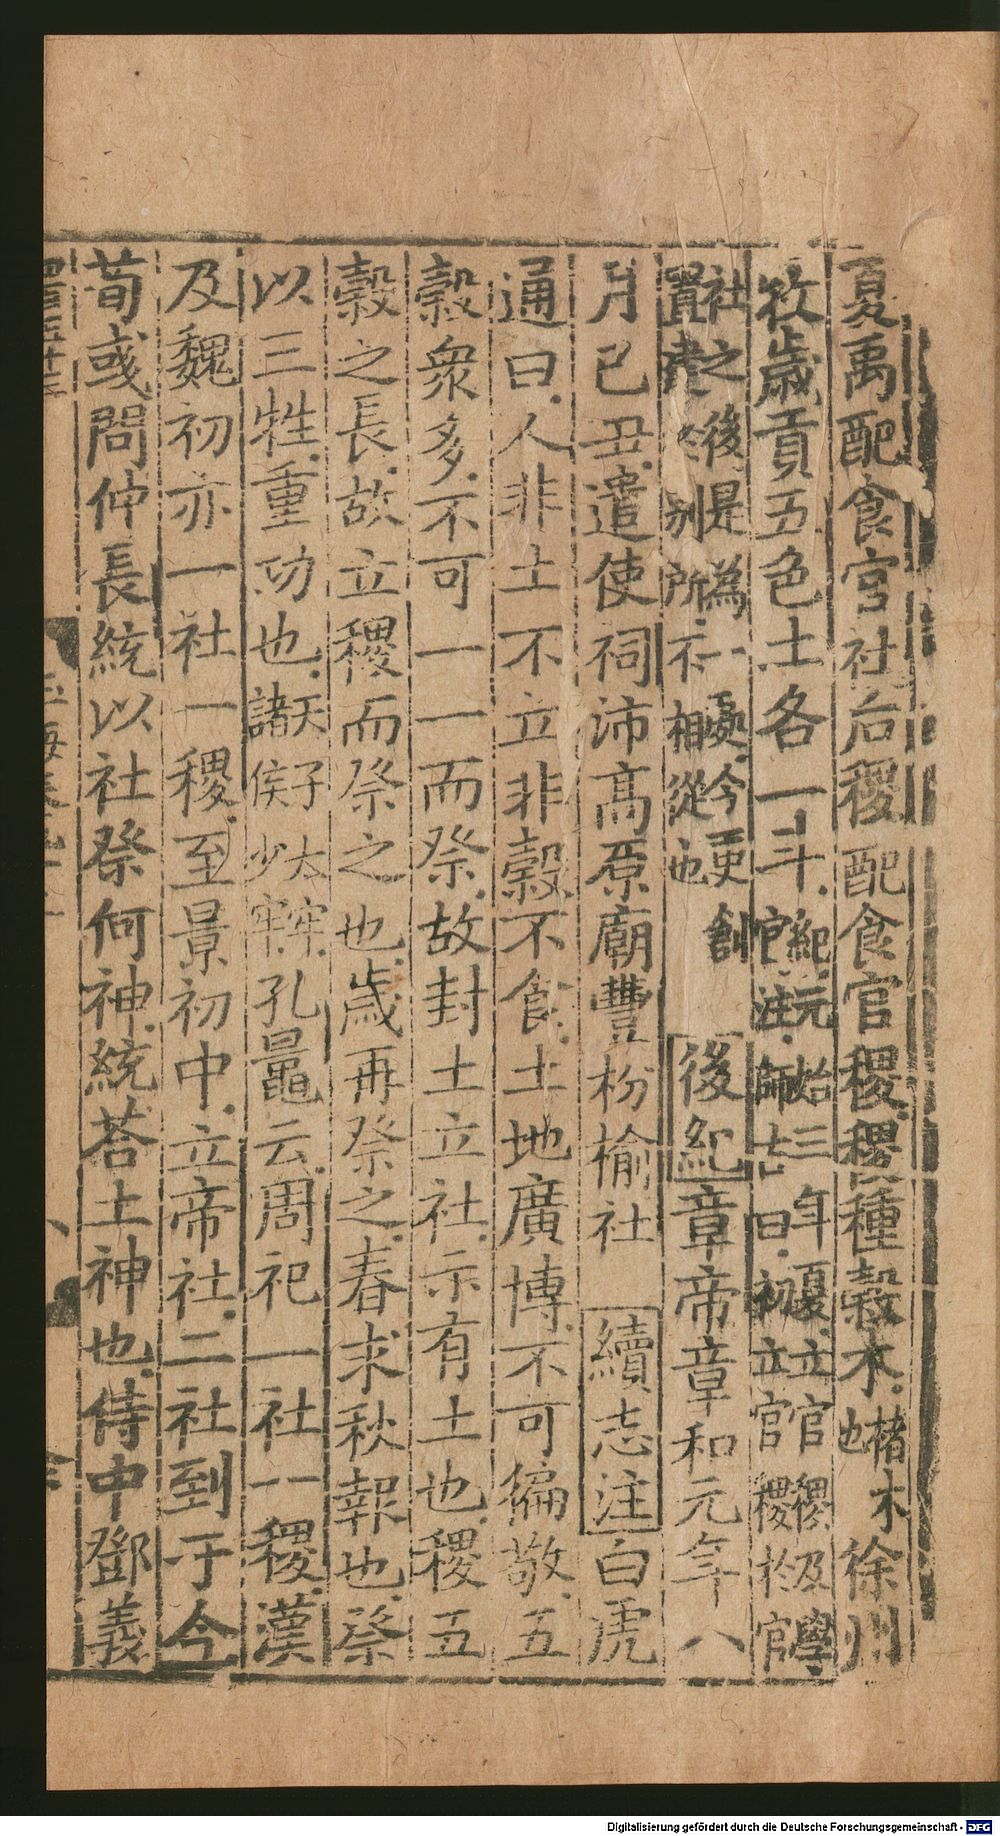 夏禹配食官社后稷配食官稷稷種穀木楮木也徐州
牧歲貢五色土各一斗紀元始三年夏立官稷及學官注師古曰初立官稷於官
社之後是為一處今更創置建於別所不相從也後紀章帝章和元年八
月己丑遣使祠沛高原廟豐枌榆社續志注白虎
通曰人非土不立非穀不食土地廣博不可徧敬五
穀衆多不可一一而祭故封土立社示有土也稷五
穀之長故立稷而祭之也歲再祭之春求秋報也祭
以三牲重功也天子大牢諸侯少牢孔鼂云周祀一社一稷漢
及魏初亦一社一稷至景初中立帝社二社到于今
荀彧問仲長統以社祭何神統荅土神也侍中鄧義
Digitalisierung gefördert durch die Deutsche Forschungsgemeinschaft - DFG